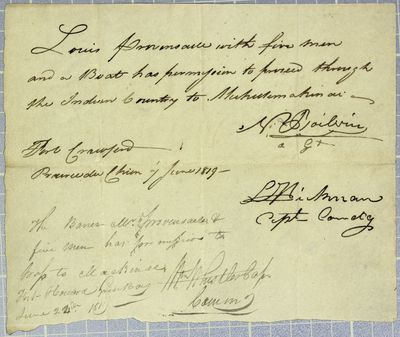 Louis Provensalle with five men
and a Boat has permission to proceed through
the Indian Country to Michilimakinac
N. Boilvin
a gt
Fort Crawford
Prairie du Chien 7 June 1819
L Hickman
Cpt Comdg
The Bearer Mr Provensalle &
five men has permission to
pass to Mackinac
Fort Howard Green Bay
Wm Whistler Cap
June 22d 1819
Comm